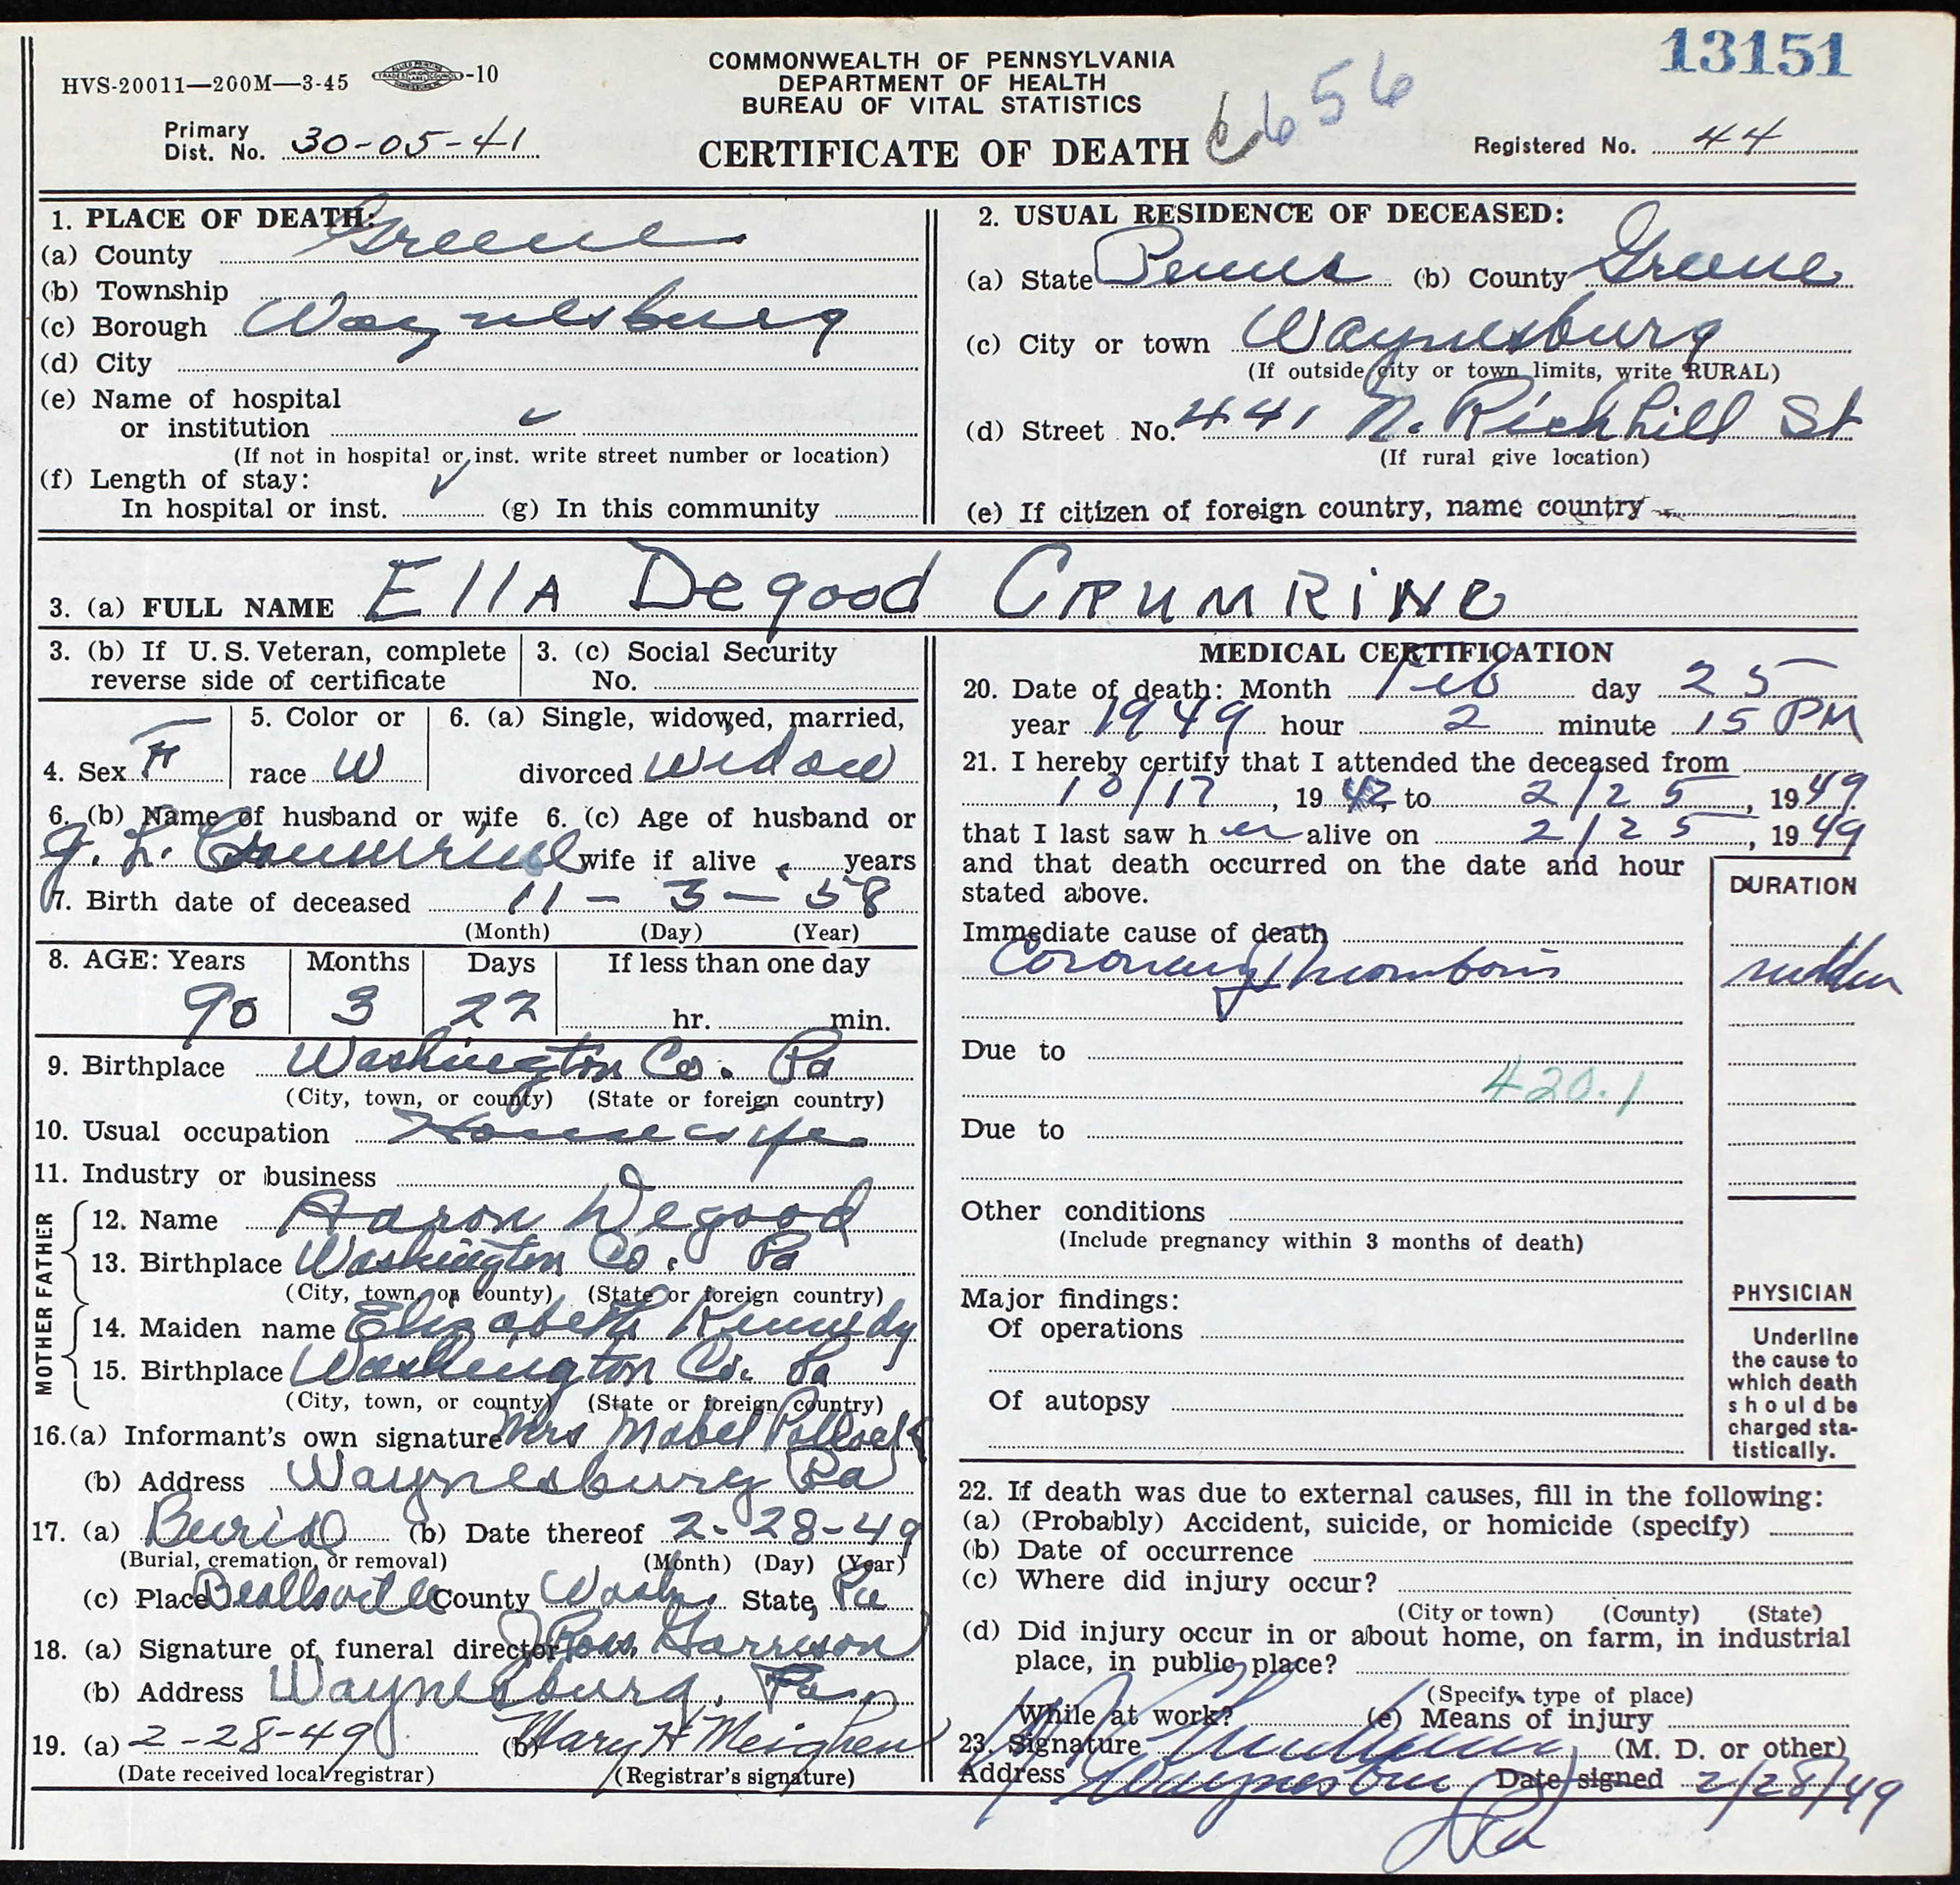 13151
HVS-20011—200M—3-45 -10
COMMONWEALTH OF PENNSYLVANIA
DEPARTMENT OF HEALTH
BUREAU OF VITAL STATISTICS
CERTIFICATE OF DEATH
6656
Primary
Dist. No. 30-05-41
Registered No. 44
1. PLACE OF DEATH:
(a) County Greene
(b) Township
(c) Borough Waynesburg
(d) City
(e) Name of hospital
or institution
(If not in hospital or inst. write street number or location)
(f) Length of stay:
In hospital or inst. (g) In this community
2. USUAL RESIDENCE OF DECEASED:
(a) State Penna (b) County Greene
(c) City or town Waynesburg
(If outside city or town limits, write RURAL)
(d) Street No. 441 N. Richhill St
(If rural give location)
(e) If citizen of foreign country, name country
3. (a) FULL NAME Ella Degood Crumrine
3. (b) If U. S. Veteran, complete
reverse side of certificate
3. (c) Social Security
No.
4. Sex F
5. Color or
race W
6. (a) Single, widowed, married,
divorced Widow
6. (b) Name of husband or wife 6. (c) Age of husband or
J. L. Crumrine wife if alive years
7. Birth date of deceased 11 - 3 - 58
(Month) (Day) (Year)
8. AGE: Years Months Days If less than one day
90 3 22 hr. min.
9. Birthplace Washington Co. Pa
(City, town, or county) (State or foreign country)
10. Usual occupation Housewife
11. Industry or business
FATHER
12. Name Aaron Degood
13. Birthplace Washington Co. Pa
(City, town, or county) (State or foreign country)
MOTHER
14. Maiden name Elizabeth Kennedy
15. Birthplace Washington Co. Pa
(City, town, or county) (State or foreign country)
16.(a) Informant's own signature Mrs Mabel Pollock
(b) Address Waynesburg Pa
17. (a) Burial (b) Date thereof 2-28-49
(Burial, cremation, or removal) (Month) (Day) (Year)
(c) Place Beallsville County Wash. State, Pa
18. (a) Signature of funeral director J Ross Garrison
(b) Address Waynesburg. Pa.
19. (a) 2-28-49 (b) Mary H Meighen
(Date received local registrar) (Registrar's signature)
MEDICAL CERTIFICATION
20. Date of death: Month Feb day 25
year 1949 hour 2 minute 15 PM
21. I hereby certify that I attended the deceased from
10/17, 19 42, to 2/25, 1949
that I last saw h er alive on 2/25, 1949
and that death occurred on the date and hour
stated above.
DURATION
Immediate cause of death
Coronary Thrombosis sudden
Due to
420.1
Due to
Other conditions
(Include pregnancy within 3 months of death)
Major findings:
Of operations
Of autopsy
PHYSICIAN
Underline
the cause to
which death
should be
charged sta-
tistically.
22. If death was due to external causes, fill in the following:
(a) (Probably) Accident, suicide, or homicide (specify)
(b) Date of occurrence
(c) Where did injury occur?
(City or town) (County) (State)
(d) Did injury occur in or about home, on farm, in industrial
place, in public place?
(Specify type of place)
While at work? (e) Means of injury
23. Signature (M. D. or other)
Address Waynesburg Date signed 2/28/49
Pa